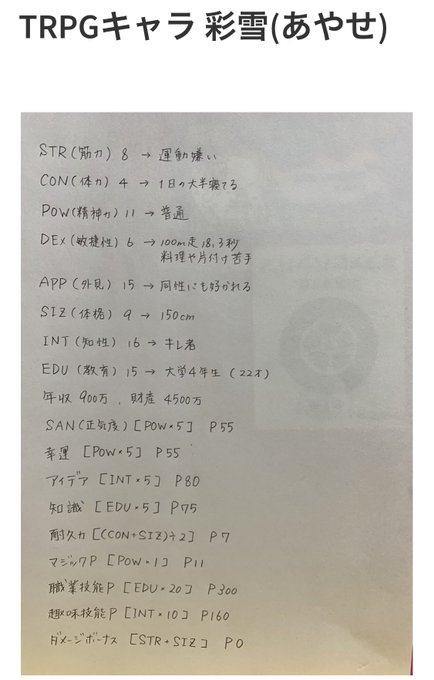 TRPGキャラ 彩雪(あやせ)
STR(筋力) 8 → 運動嫌い
CON(体力) 4 → 1日の大半寝てる
POW(精神力) 11 → 普通
DEX(敏捷性) 6 → 100m走18,3秒
料理や片付け苦手
APP(外見) 15 → 同性にも好かれる
SIZ(体格) 9 → 150cm
INT(知性) 16 → キレ者
EDU(教育) 15 → 大学4年生 (22才)
年収 900万 、財産 4500万
SAN(正気度) [POW×5] P55
幸運 [POW×5] P55
アイデア [INT×5] P80
知識 [EDU×5] P75
耐久力 [(CON+SIZ)÷2] P7
マジックP [POW×1] P11
職業技能P [EDU×20] P300
趣味技能P [INT×10] P160
ダメージボーナス [STR+SIZ] P0